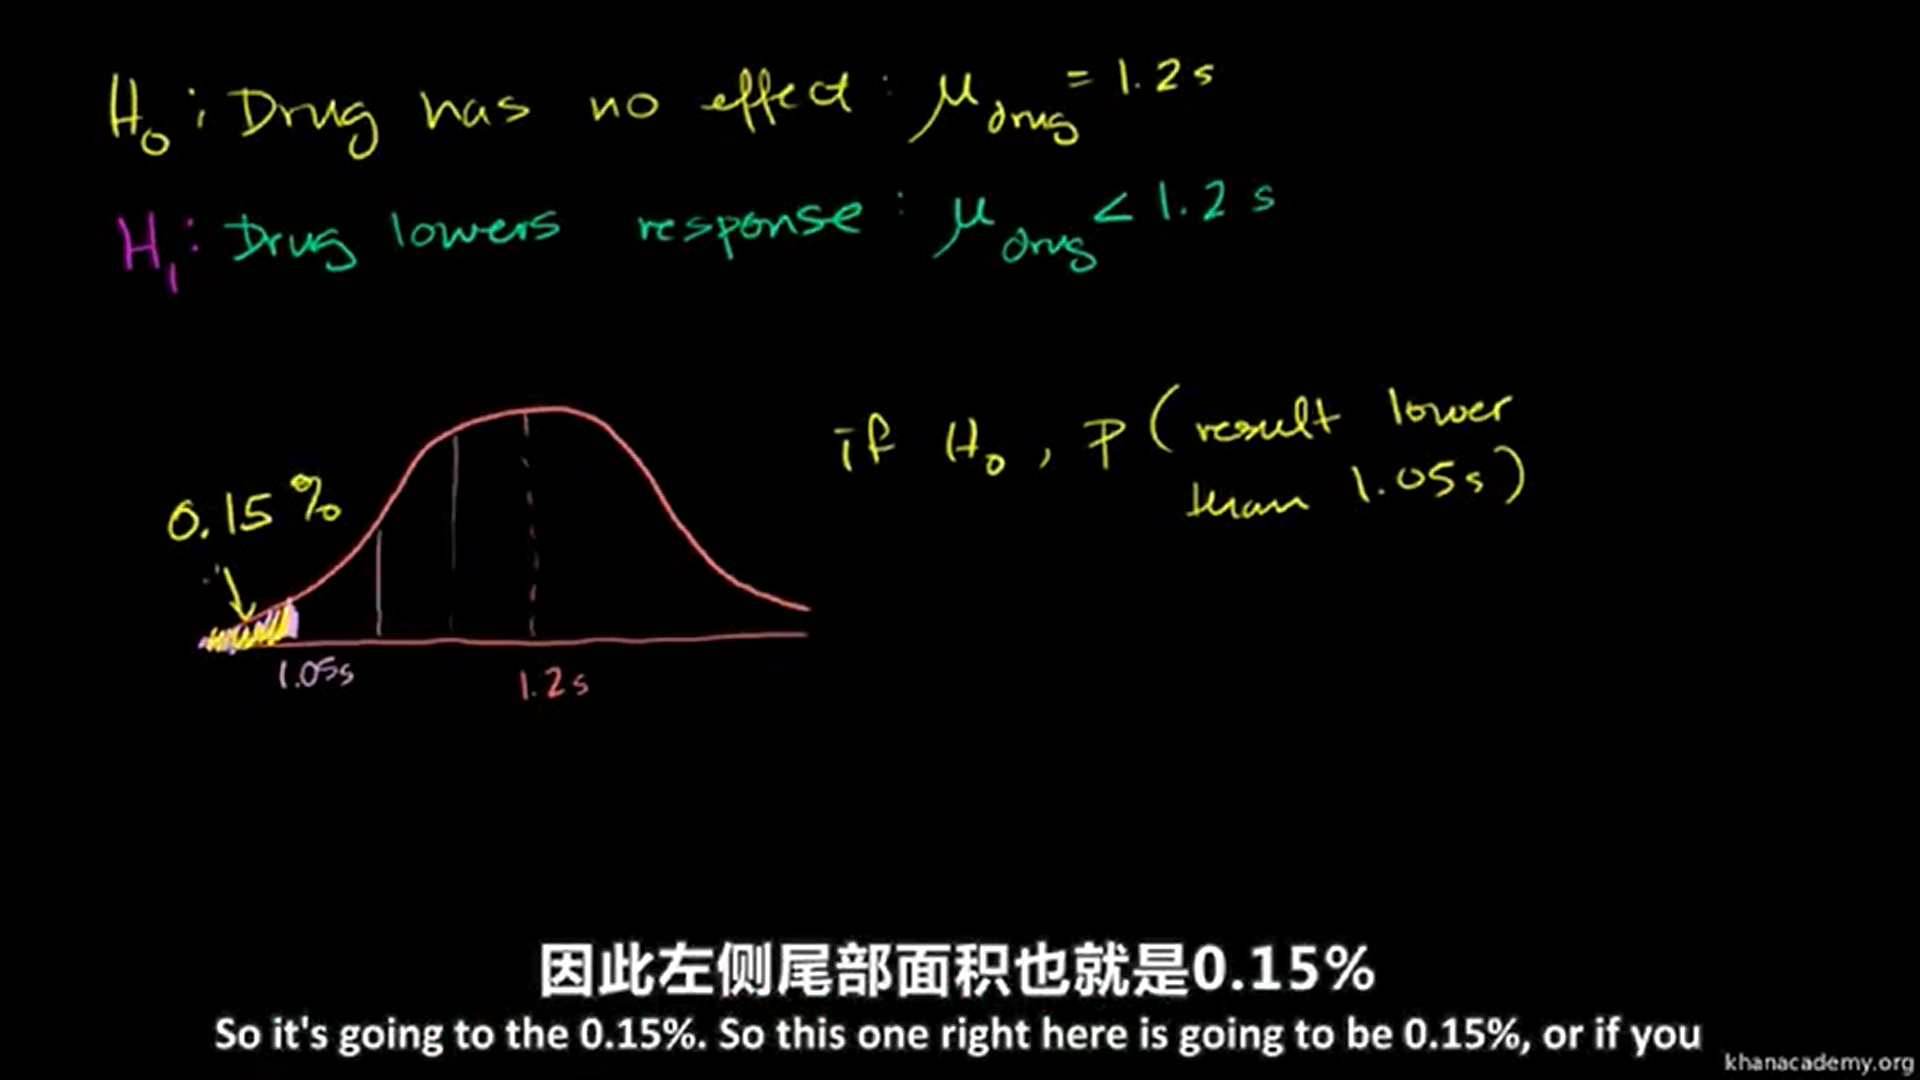 H₀: Drug has no effect: μ_drug = 1.2s
H₁: Drug lowers response: μ_drug < 1.2s
if H₀, P(result lower
than 1.05s)
0.15%
1.05s
1.2s
因此左侧尾部面积也就是0.15%
So it's going to the 0.15%. So this one right here is going to be 0.15%, or if you
khanacademy.org